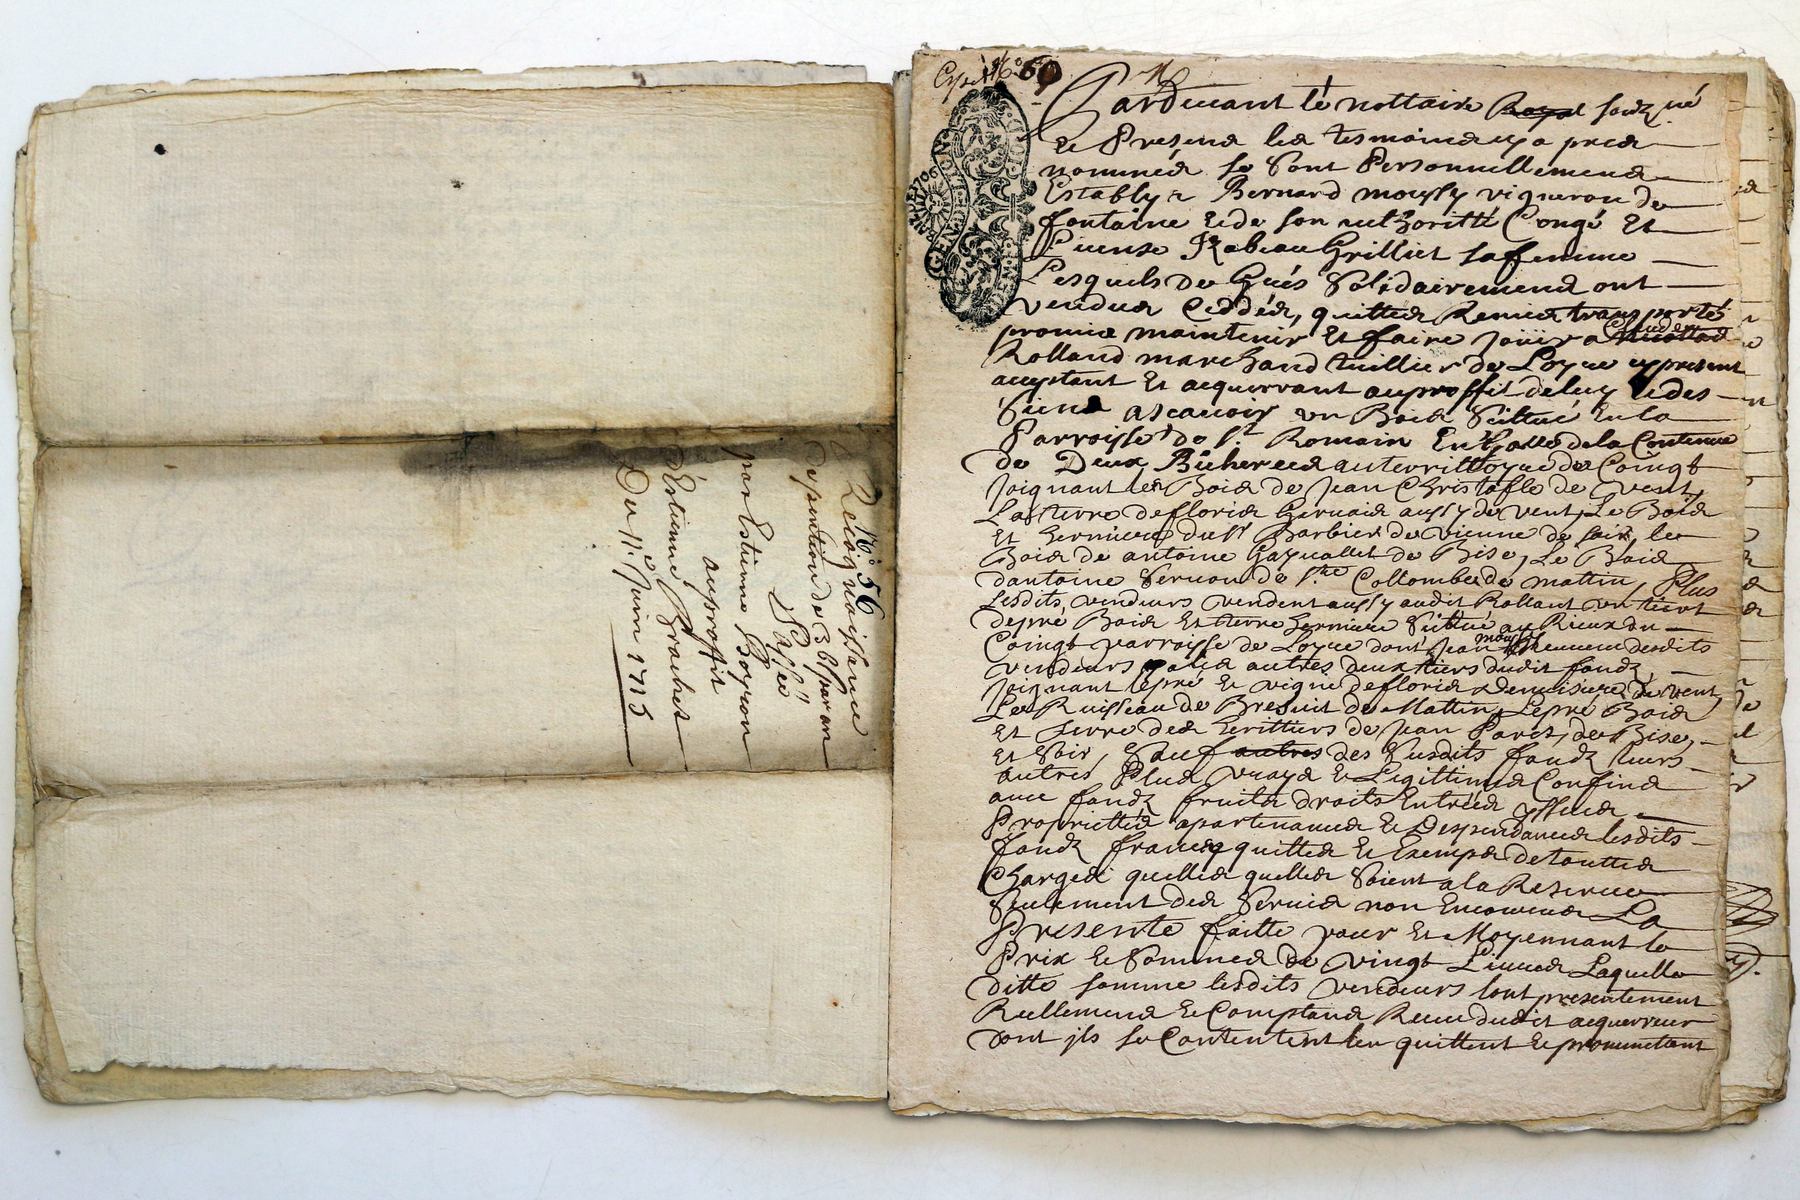 N.o 56
Recognoissance
de pention de 3 ℔ par an
passée
par Estienne Boyron
au proffit
d'Estienne Brachet
Du 11.e Juin 1715
N.o 60
GEN. DE LION
Pardeuant le nottaire Royal soubz.né
Et Presens les tesmoins cy apres
nommés se sont Personnellement
Establys Bernard moussy vigneron de
fontaine et de son authoritté Congé Et
License Izabeau Grilliet sa femme
Lesquels de Gués Solidairement ont
vendus Ceddés, quittés Remis transporté
promis maintenir Et faire Jouir a Claude
Rolland marchand tuillier de Loyre cy present
acceptant Et acquerrant au proffit de luy et des
Siens ascauoir un Bois Scittué En la
Parroisse de S.t Romain En de la Contenue
de Deux Bicherées au territtoyre de Coingt
Joignant les Bois de Jean Christofle de vent,
La terre de floris Geruais aussy de vent, Le Bois
Et hermiere du S.r Barbier de Vienne de soir, les
Bois de antoine de Bise, Le Bois
d'antoine Vernon de S.te Collombe de mattin, Plus
Lesdits vendeurs vendent aussy audit Rolland un tiers
de pré Bois Et terre hermiere Scittué au Rieux du
Coingt parroisse de Loyre dont Jean moussy desdits
vendeurs a les autres deux tiers dudit fondz
Joignant le pré Et vigne de floris de vent,
Le Ruisseau de de Mattin, Le pré Bois
Et terre des herittiers de Jean Paret, de Bise,
Et Soir, Sauf autres des Susdits fondz leurs
autres Plus vrays Et Legittimes Confins
auec fondz fruits droits Entrées yssues
Proprietté apartenances Et Despendances lesdits
fondz francs quittes Et Exempts de touttes
Charges quelles quelles Soient a la Reserue
Seulement des Seruis non Encourus La
Presente faitte pour Et Moyennant le
Prix Et Somme de vingt Liures Laquelle
ditte somme lesdits vendeurs l'ont presentement
Reellement Et Comptant Receu dudit acquerreur
dont jls se Contentent l'en quittent Et promettent